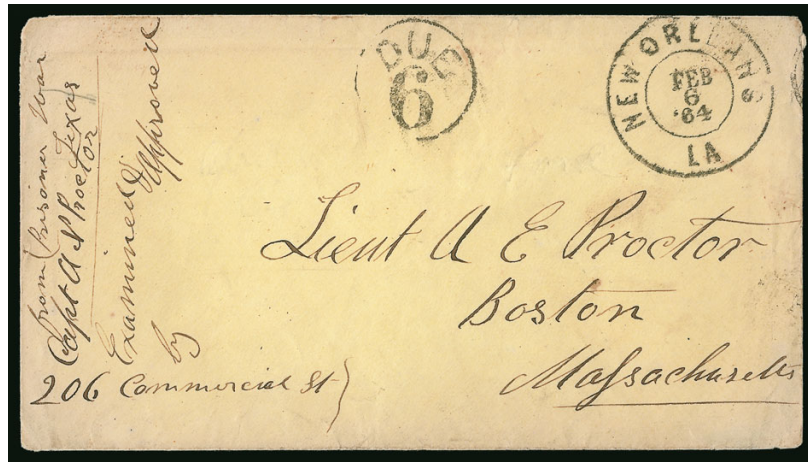 from Prisoner War
Capt A N Proctor Texas
Examined & approved
by
DUE
6
NEW ORLEANS
FEB
6
'64
LA
Lieut A E Proctor
Boston
Massachusetts
206 Commercial St